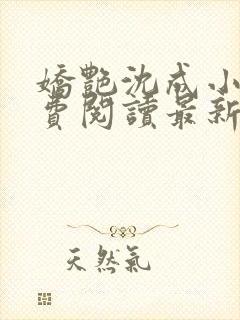 嬌艷沈戒小
費閱讀最新
天然氣